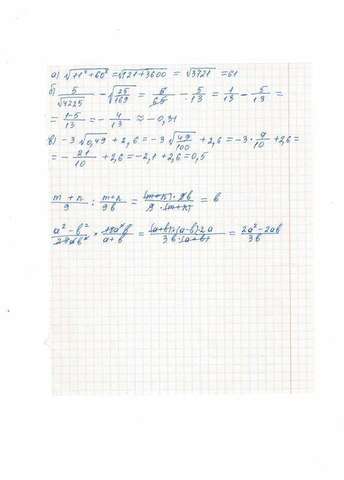 а) √11²+60² = √121+3600 = √3721 = 61
б) 5/√4225 - √25/169 = 5/65 - 5/13 = 1/13 - 5/13 =
= 1-5/13 = - 4/13 ≈ -0,31
в) -3√0,49 + 2,6 = -3√49/100 + 2,6 = -3·7/10 + 2,6 =
= - 21/10 + 2,6 = -2,1 + 2,6 = 0,5
m+n/9 : m+n/9в = (m+n)·9в/9·(m+n) = в
а²-в²/ав² · а²в/а+в = (а+в)·(а-в)·2а/3в·(а+в) = 2а²-2ав/3в